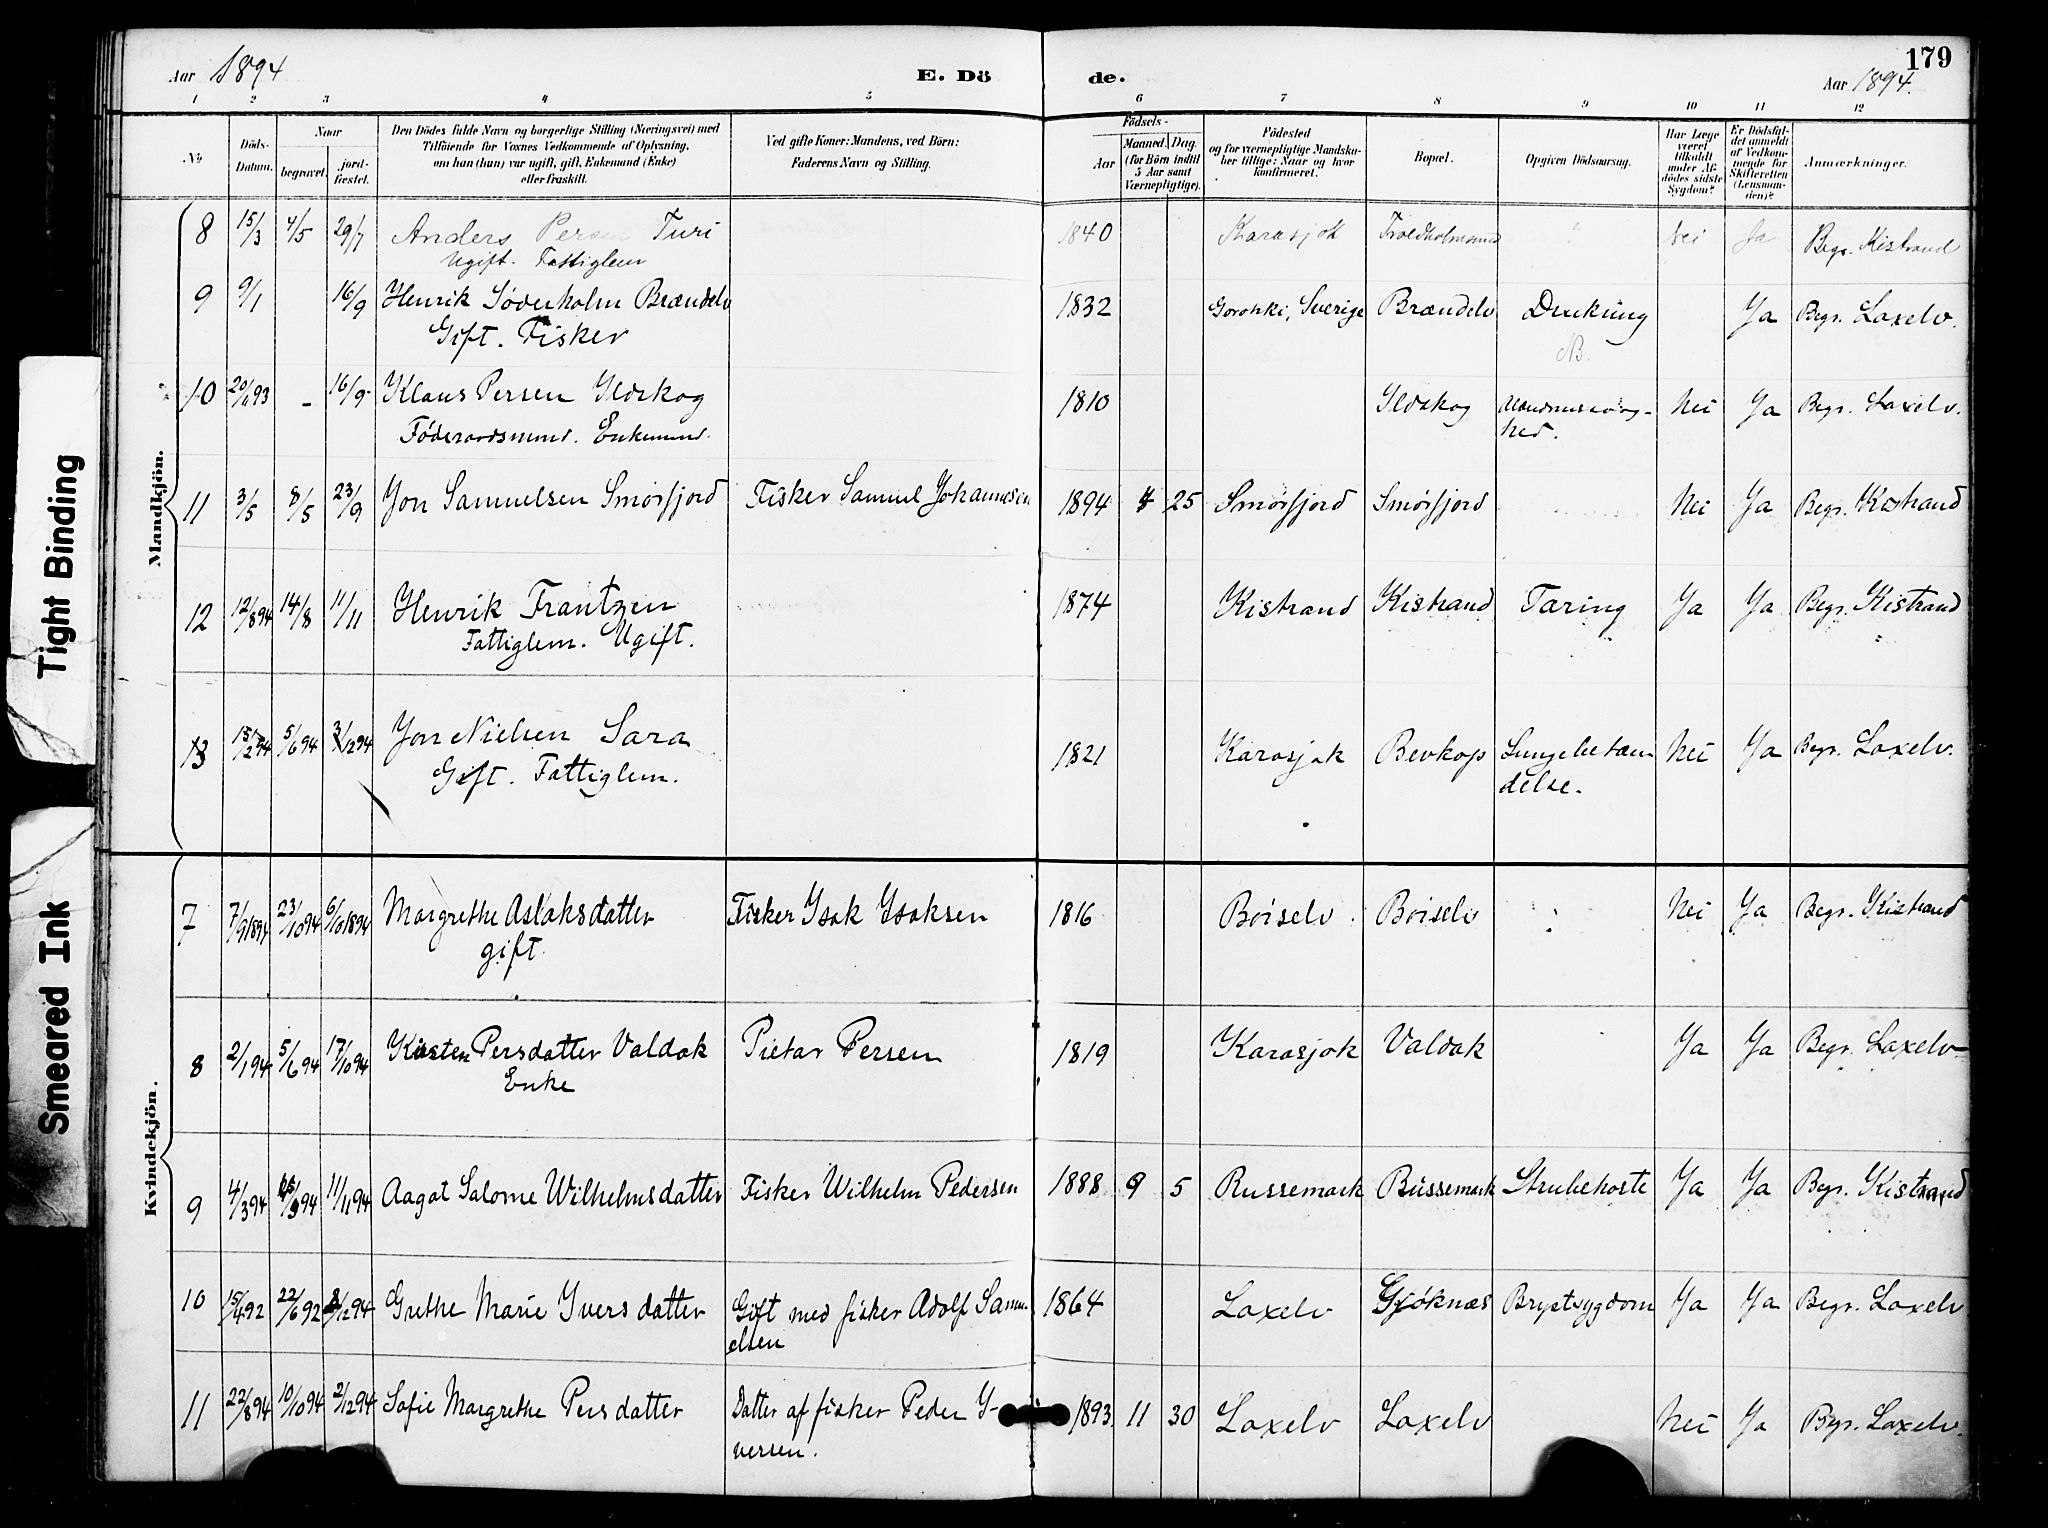 Aar 1894
E. Dö
de.
179
Aar 1894.
1 2 3 4 5 6 7 8 9 10 11 12
No
Döds-Datum.
Naar
begravet.
jord-fæstet.
Den Dödes fulde Navn og borgerlige Stilling (Næringsvei) med
Tilföiende for Voxnes Vedkommende af Oplysning,
om han (hun) var ugift, gift, Enkemand (Enke)
eller fraskilt.
Ved gifte Koner: Mandens, ved Börn:
Faderens Navn og Stilling.
Födsels-
Aar
Maaned. Dag.
(for Börn indtil
5 Aar samt
Værnepligtige).
Födested
og for værnepligtige Mandska-
ber tillige: Naar og hvor
konfirmeret.
Bopæl.
Opgiven Dödsaarsag.
Har Læge
været
tilkaldt
under Af-
dödes sidste
Sygdom?
Er Dödsfal-
det anmeldt
af Vedkom-
mende for
Skifteretten
(Lensman-
den)?
Anmærkninger.
Mandkjön.
8 15/3 4/5 29/7 Anders Persen Turi 1840 Karasjok Troldholmsund ? Nei Ja Begr. Kistrand
Ugift. Fattiglem
9 9/1 16/9 Henrik Söderholm Brændelv 1832 Sverige Brændelv Drukning Ja Begr. Laxelv.
Gift. Fisker NB.
10 20/11 93 - 16/9 Klaus Persen Ildskog 1810 Ildskog Nei Ja Begr. Laxelv.
Föderaadsmand. Enkemand. hed.
11 3/5 8/5 23/9 Jon Samuelsen Smörfjord Fisker Samuel Johannesen 1894 4 25 Smörfjord Smörfjord Nei Ja Begr. Kistrand
12 12/8 94 14/8 11/11 Henrik Frantzen 1874 Kistrand Kistrand Tæring Ja Ja Begr. Kistrand
Fattiglem. Ugift.
13 13/2 94 5/6 94 3/12 94 Jon Nielsen Sara 1821 Karasjok Bevkop Lungebetæn Nei Ja Begr. Laxelv.
Gift. Fattiglem. delse.
Kvindekjön.
7 7/9 1894 23/10 94 6/10 1894 Margrethe Aslaksdatter Fisker Isak Isaksen 1816 Börselv Börselv ? Nei Ja Begr. Kistrand
gift.
8 2/1 94 5/6 94 17/10 94 Kirsten Persdatter Valdak Pietar Persen 1819 Karasjok Valdak Ja Ja Begr. Laxelv
Enke
9 4/3 94 94 11/11 94 Aagot Salome Wilhelmsdatter Fisker Wilhelm Pedersen 1888 9 5 Russemark Russemark Strubehoste Ja Ja Begr. Kistrand
10 15/4 92 22/6 92 2/12 94 Grethe Marie Iversdatter Gift med fisker Adolf Samu- 1864 Laxelv Gjöknæs Brystsygdom Ja Ja Begr. Laxelv
elsen
11 22/8 94 10/10 94 2/12 94 Sofie Margrethe Persdatter Datter af fisker Peder I- 1893. 11 30 Laxelv Laxelv Nei Ja Begr. Laxelv.
versen.
Tight Binding
Smeared Ink